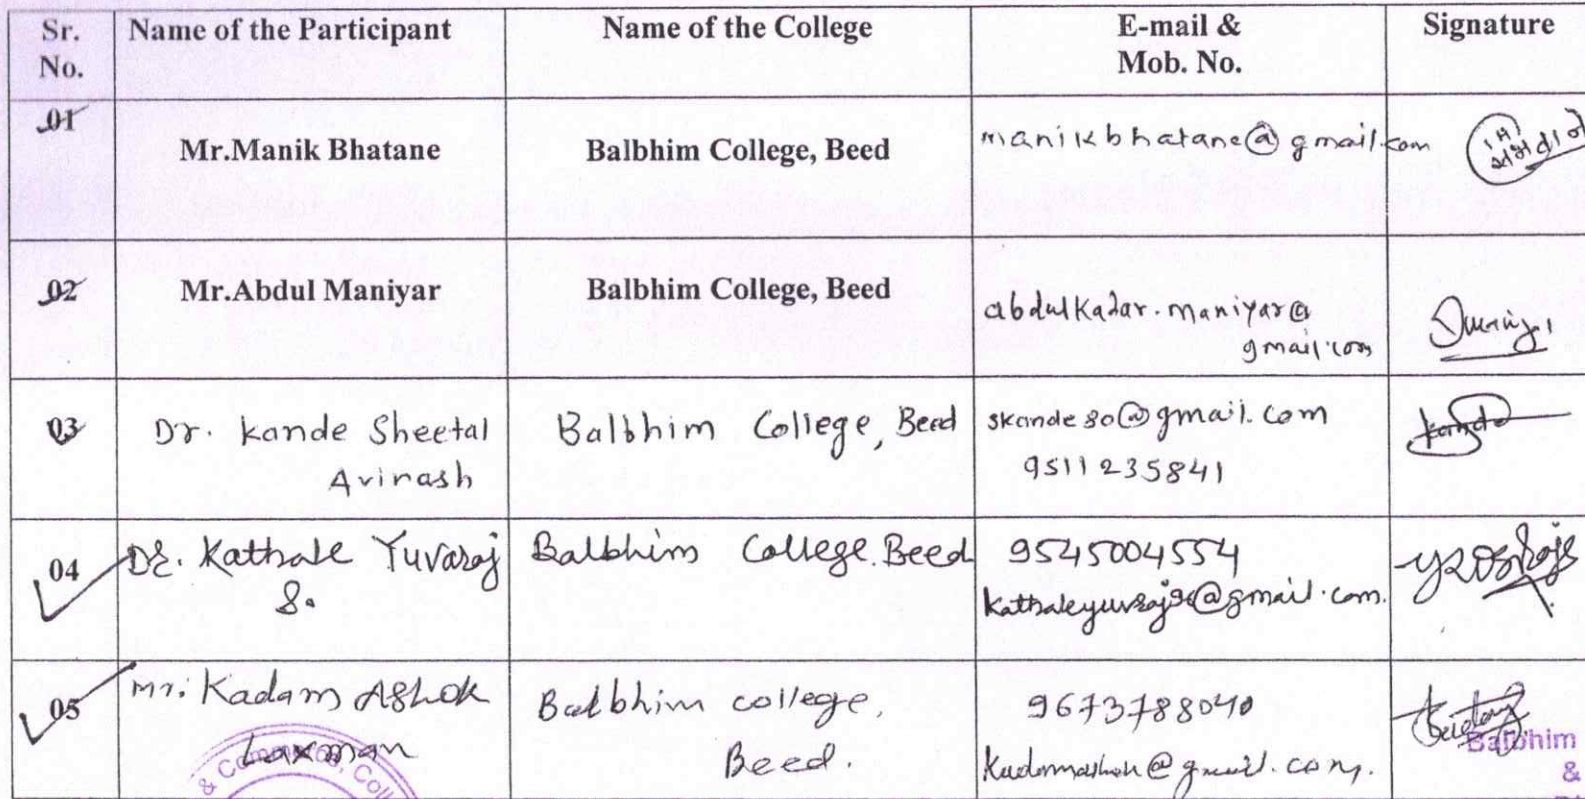 Sr. No. Name of the Participant Name of the College E-mail & Mob. No. Signature
01 Mr.Manik Bhatane Balbhim College, Beed manikbhatane@gmail.com
02 Mr.Abdul Maniyar Balbhim College, Beed abdulkadar.maniyar@
gmail.com
03 Dr. Kande Sheetal Balbhim College, Beed skande80@gmail.com
Avinash 9511235841
04 Dr. Kathale Yuvaraj Balbhim College.Beed 9545004554
S.
05 Mr. Kadam Ashok Balbhim college, 9673788040
Laxman Beed.
Balbhim
&